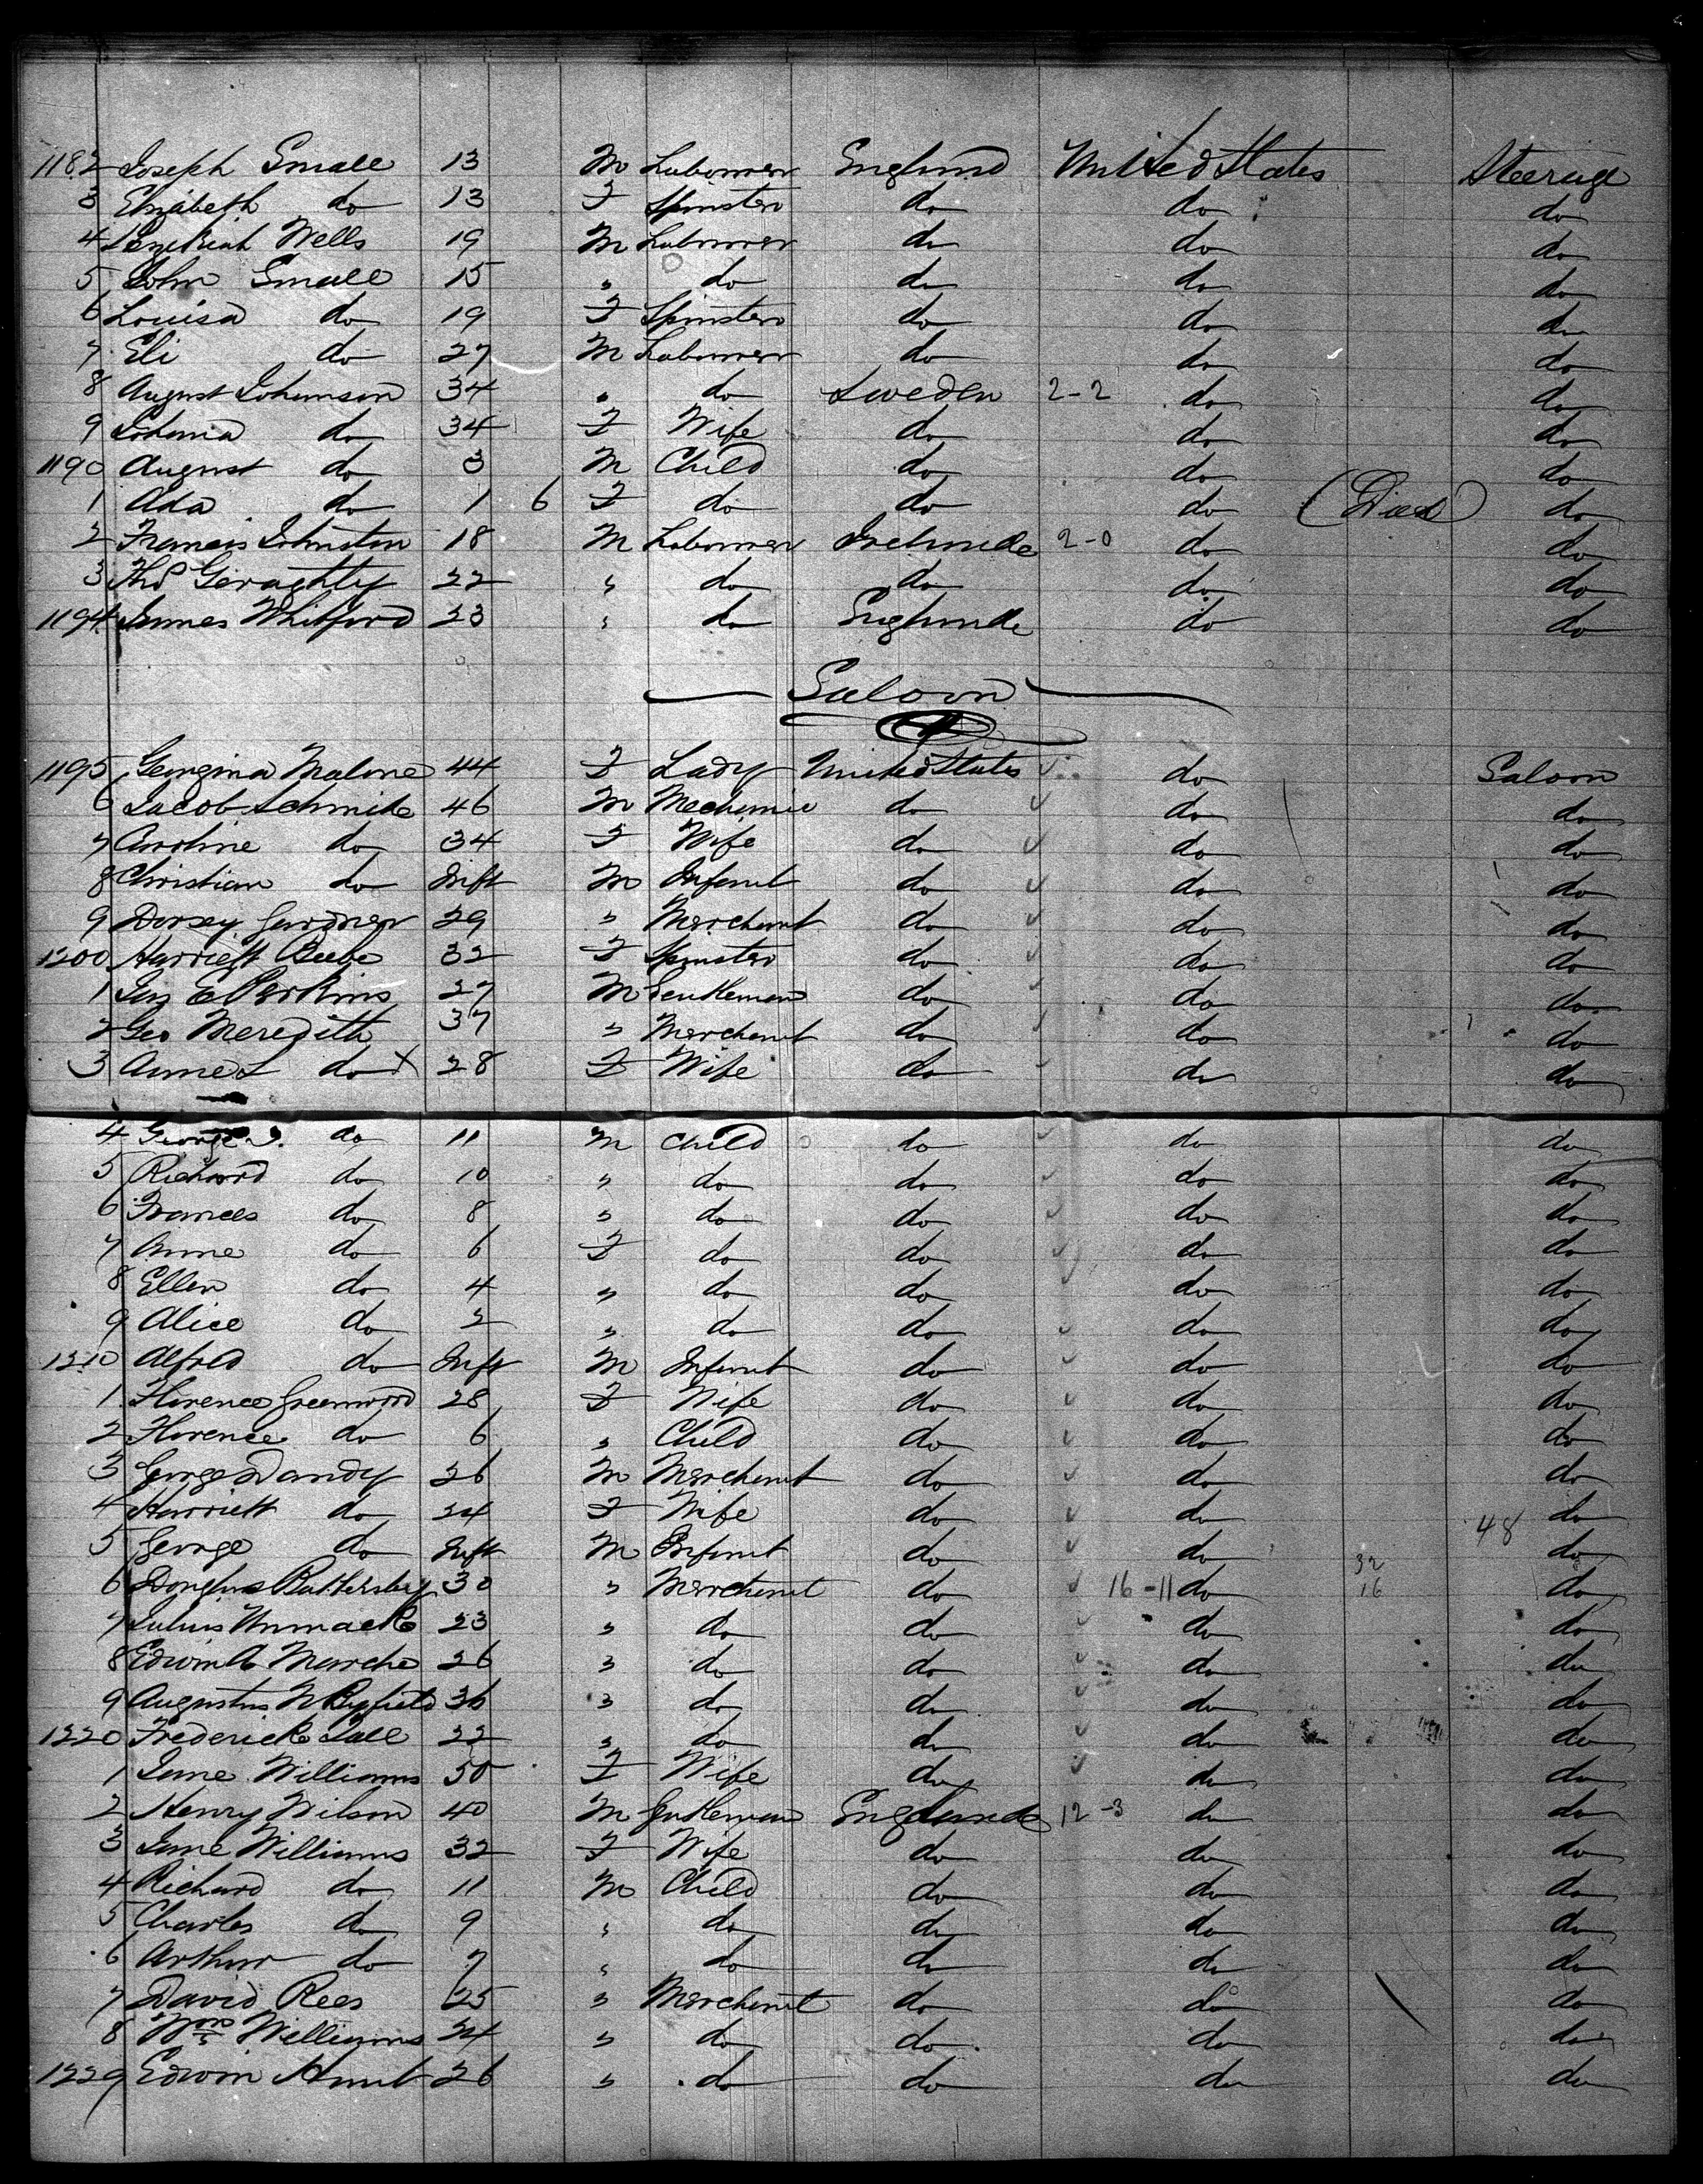 1182 Joseph Small 13 M Labourer England United States Steerage
3 Elizabeth do 13 F Spinster do do do
4 Hezekiah Wells 19 M Labourer do do do
5 John Small 15 " do do do do
6 Louisa do 19 F Spinster do do do
7 Eli do 27 M Labourer do do do
8 August Johannson 34 " do Sweden 2-2 do do
9 do 34 F Wife do do do
1190 August do 3 M Child do do do
1 Ada do 1 6 F do do do (Died) do
2 Francis Johnston 18 M Labourer Irelande 2-0 do do
3 Thos Geraghty 22 " do do do do
1194 James Whitford 23 " do Englande do do
Saloon
1195 Georgina Malone 44 F Lady United States do Saloon
6 Jacob Schmide 46 M Mechanic do do do
7 Caroline do 34 F Wife do do do
8 Christian do Inft M Infant do do do
9 Dorsey Gardner 29 " Merchant do do do
1200 Harriett Beebe 32 F Spinster do do do
1 Jas E Perkins 27 M Gentleman do do do
2 Geo Meredith 37 " Merchant do do do
3 Anne L do x 28 F Wife do do do
4 George J. do 11 M Child do do do
5 Richard do 10 " do do do do
6 Frances do 8 " do do do do
7 Anne do 6 F do do do do
8 Ellen do 4 " do do do do
9 Alice do 2 " do do do do
1210 Alfred do Inft M Infant do do do
1 Florence Greenwood 28 F Wife do do do
2 Florence do 6 " Child do do do
3 George Dandy 26 M Merchant do do do
4 Harriett do 24 F Wife do do 48 do
5 George do Inft M Infant do do 32 do
6 Douglas Battersby 30 " Merchant do 16-11 do 16 do
7 Julius Unmack 23 " do do do do
8 Edwin A Marche 26 " do do do do
9 Augustus W Byfield 36 " do do do do
1220 Frederick Tall 22 " do do do do
1 Jane Williams 50 F Wife do do do
2 Henry Wilson 40 M Gentleman Englande 12-3 do do
3 Jane Williams 32 F Wife do do do
4 Richard do 11 M Child do do do
5 Charles do 9 " do do do do
6 Arthur do 7 " do do do do
7 David Rees 25 " Merchant do do do
8 Wm Williams 24 " do do do do
1229 Edwin Hunt 26 " do do do do